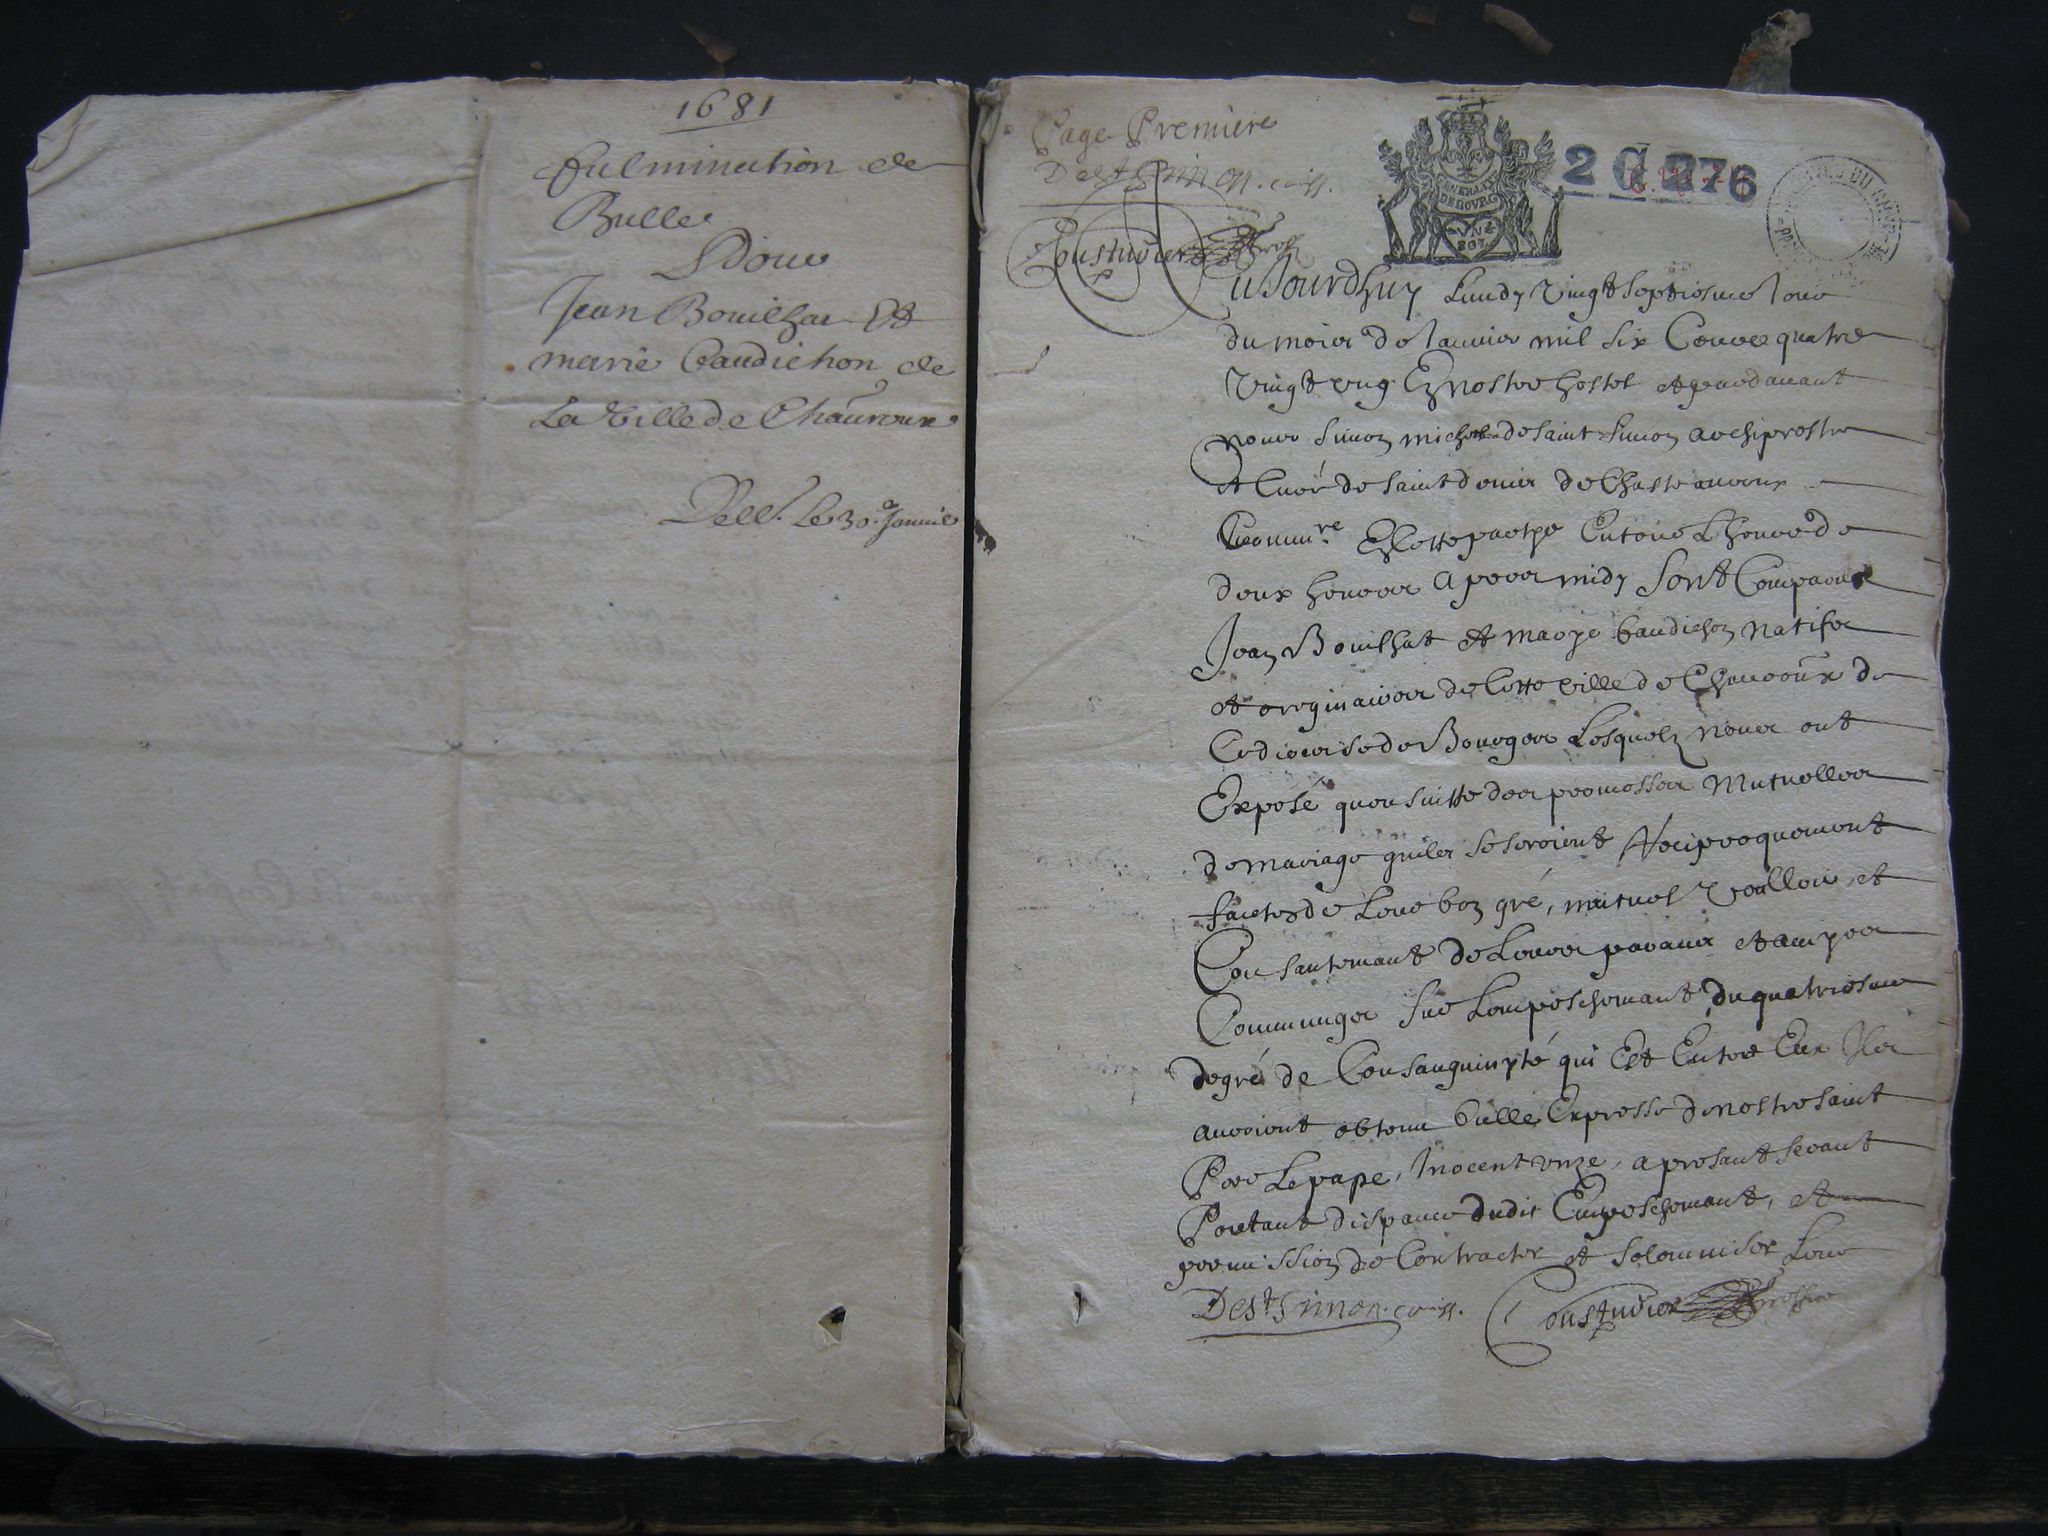 1681
fulmination de
Bulle
Pour
Jean Bouilhat Et
marie Baudichon de
La Ville de Chauroux
Dell. Le 30e Janvie
Page Premiere
De St Simon. com.
Coustuvier Greffier
GENERALITE
DE BOVRG
2 G 276
Aujourdhuy Lundy vingt Septiesme Jour
du mois de Janvier mil six Cens quatre
vingt ung En nostre hostel et pardavant
nous Simon michel de Saint Simon archiprestre
et Curé de Saint denis de Chasteauroux
Commre En cette partye Entour L'heure de
deux heures apres midy Sont Comparus
Jean Bouilhat et marye Baudichon natifs
et orreginaires de Cette ville de Chauroux de
Ce diocise de Bourges Lesquelz nous ont
Exposé qu'en suitte des promesses Mutuelles
de mariage quils se seroient Reciproquement
faictes de Leur bon gré, mutuel voulloir et
Consantemant de Leurs parans et amyes
Communges Sur Lempeschemant du quatriesme
degré de Consanguinyté qui Est Entre Eux Ils
auroient obtenu bulle Expresse de nostre Saint
Pere Le pape, Inocent unze, a presant seant
Portant dispance dudit Empeschemant, et
permission de Contracter et Solemniser Leur
De St Simon. com. Coustuvier Greffier